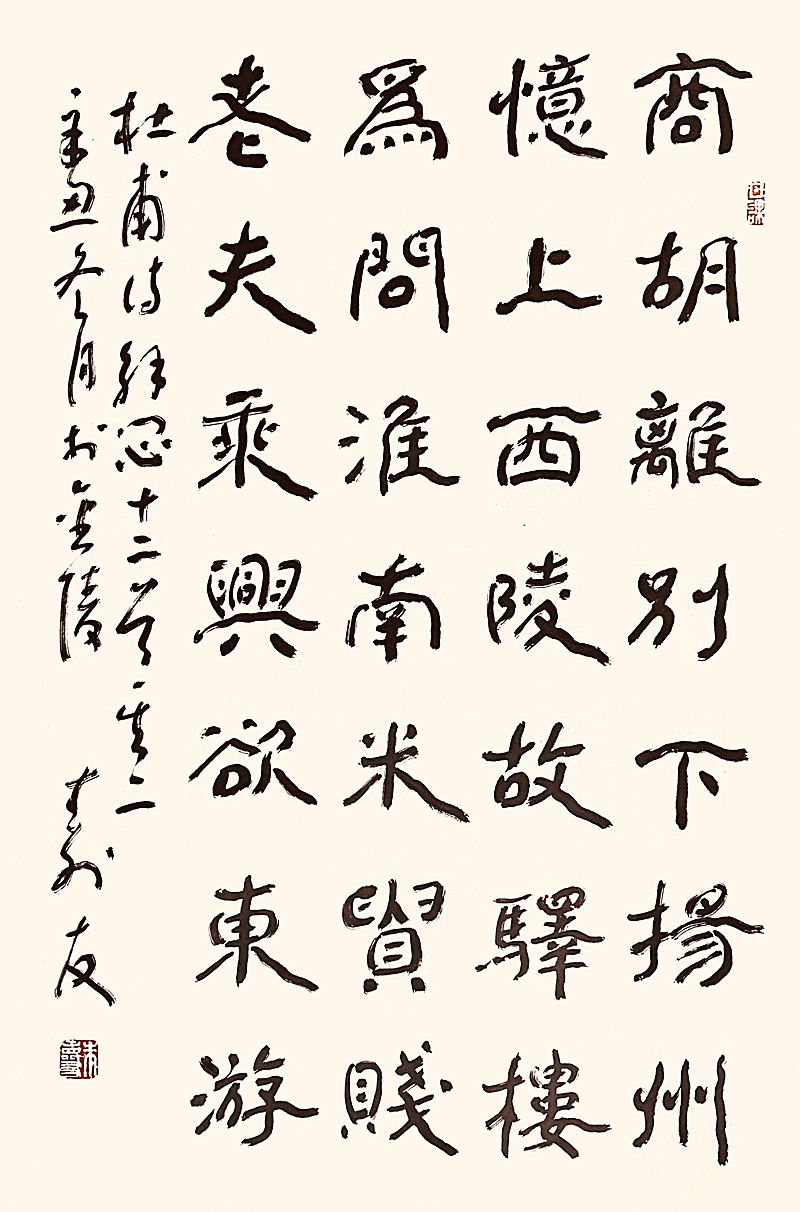 商胡離別下揚州
憶上西陵故驛樓
爲問淮南米貴賤
老夫乘興欲東游
杜甫詩解悶十二首其二
辛丑冬月於金陵 壽友